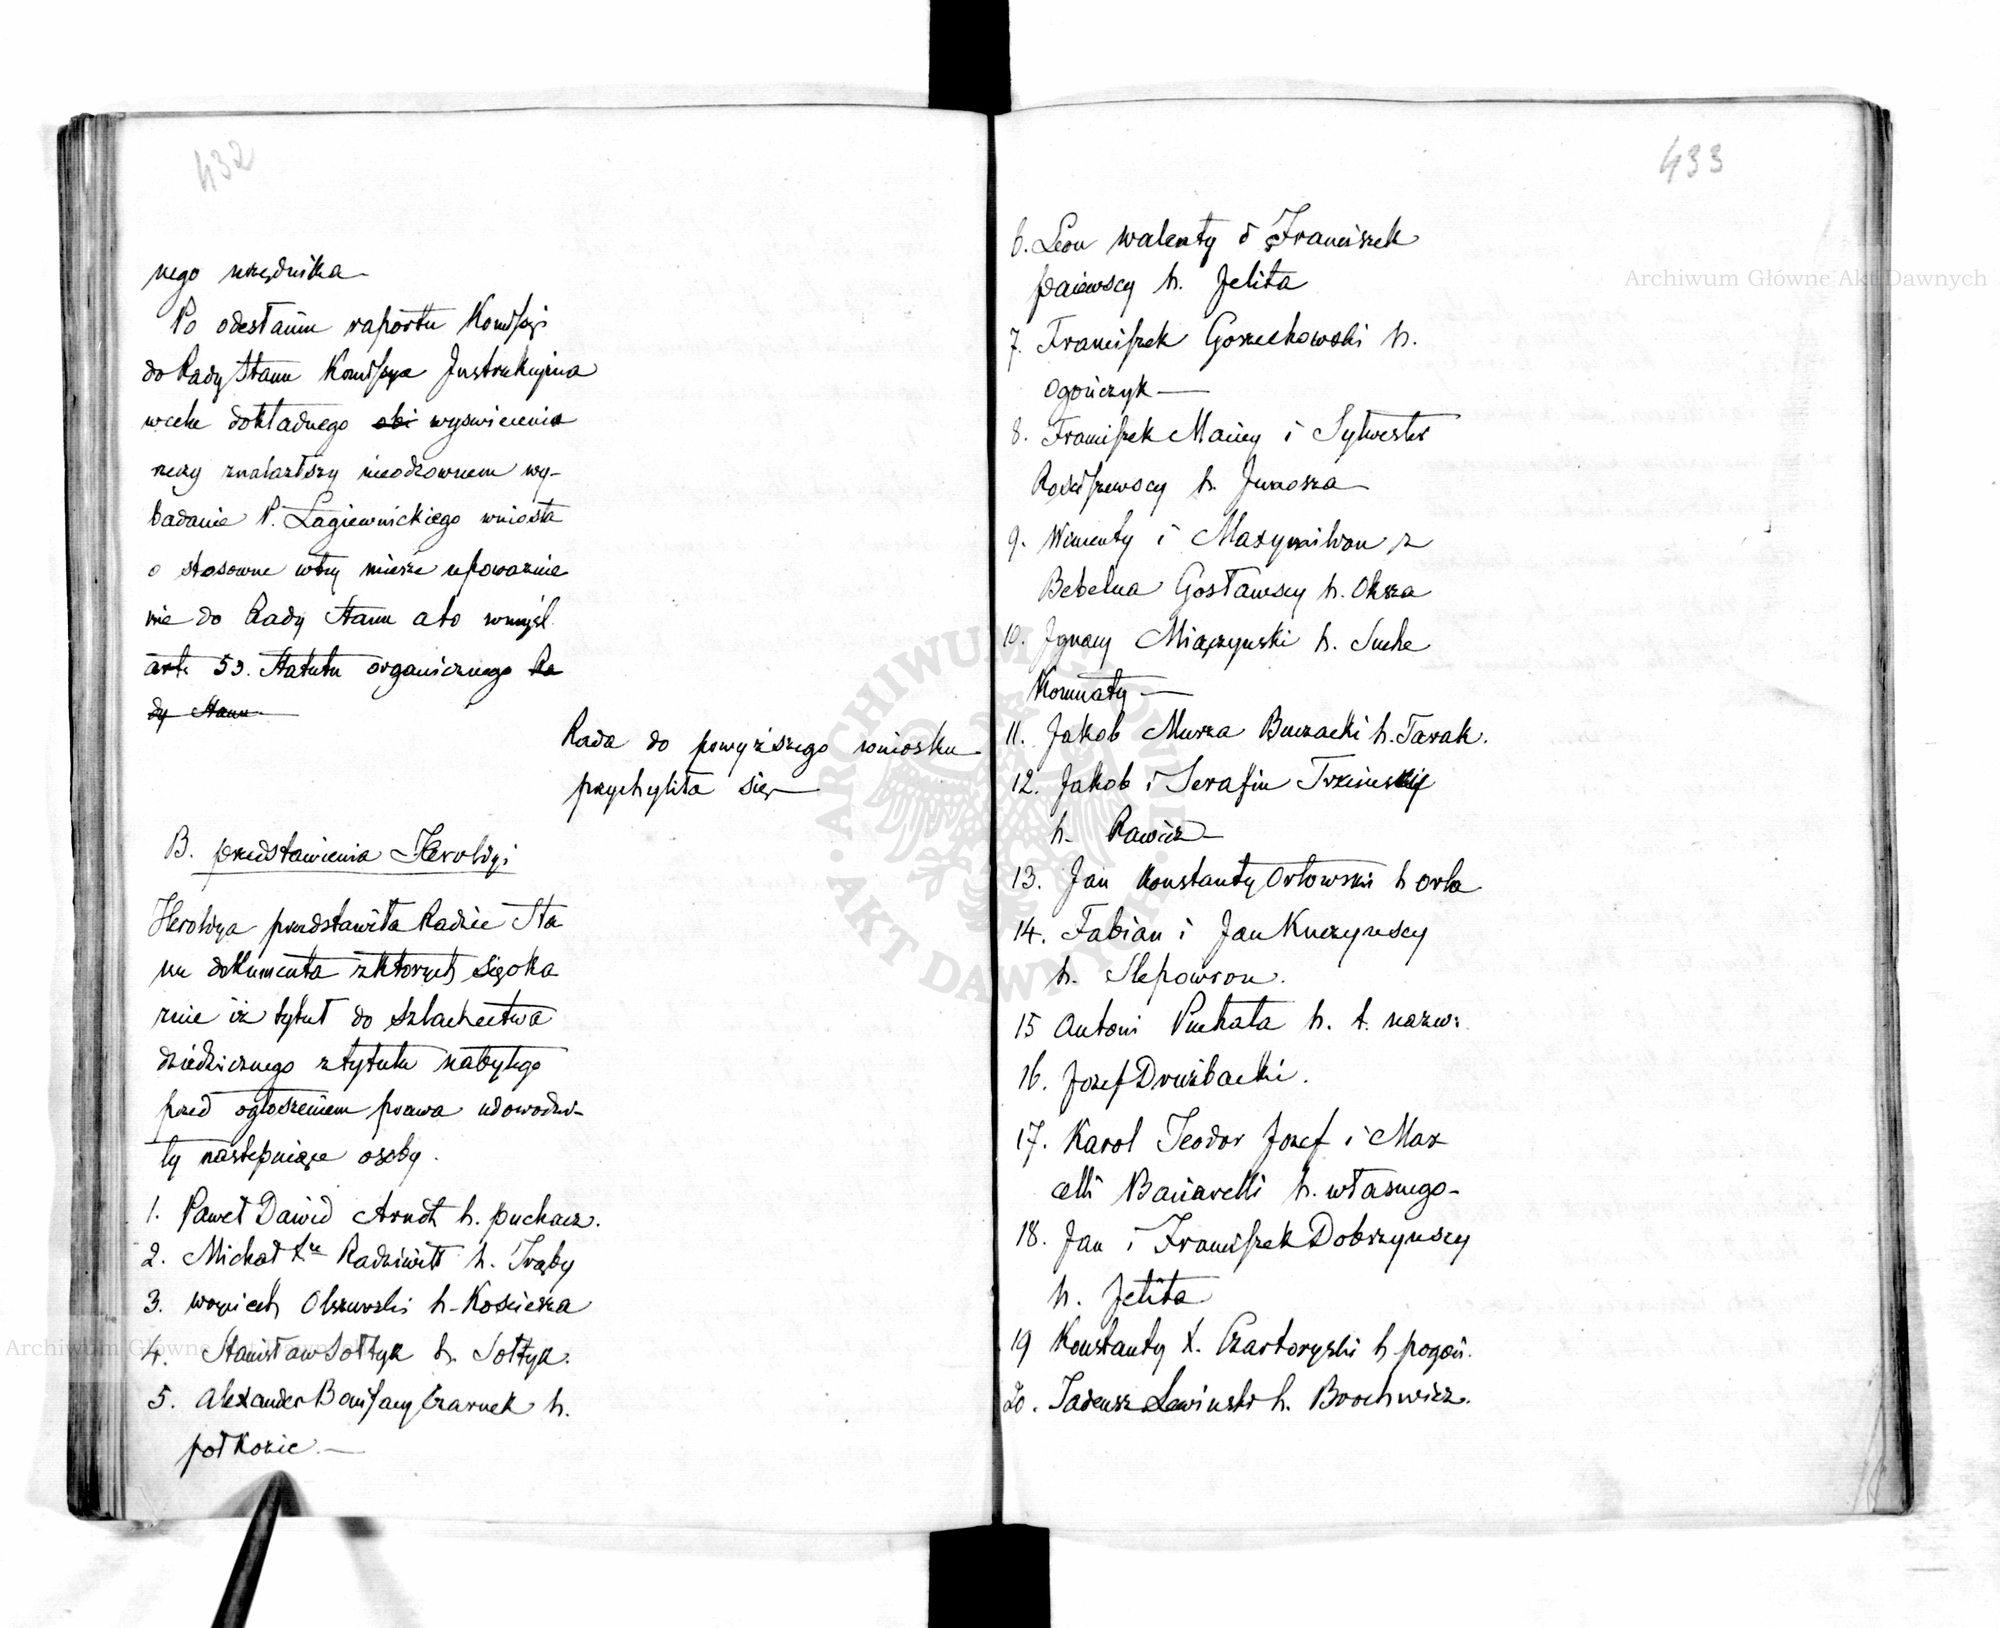 432
nego urzędnika
Po odesłaniu raportu Komissyi
do Rady Stanu Komissya Instrukcyjna
w celu dokładnego obi wyswiecenia
rzeczy znalazłszy nieodzownem wy-
badanie P. Łagiewnickiego wniosła
o stosowne w try mierze upoważnie
nie do Rady Stanu a to w myśl
art. 53. Statutu organicznego Ra
dy Stanu.
Rada do powyższego wniosku
przychyliła się
B. przedstawienia Heroldyi
Heroldya przedstawiła Radzie Sta
nu dokumenta z ktorych się oka
znie iż tytuł do szlachectwa
dziedzicznego z tytułu nabytego
przed ogłoszeniem prawa udowodni-
ły następuiące osoby.
1. Paweł Dawid Arndt h. puchacz.
2. Michał Xże Radziwiłł h. Trąby
3. Woyciech Olszewski h. Kościesza
4. Stanisław Sołtyk h. Sołtyk.
5. Alexander Bonifacy Czarnek h.
połkozie.
433
6. Leon Walenty i Franciszek
h. Jelita
7. Franciszek Gorzechowski h.
Ogończyk
8. Franciszek Maciey i Sylwester
Rościszewscy h. Junosza
9. Wincenty i Maxymilian z
Bebelna Gosławscy h. Oksza
10. Ignacy Miączynski h. Suche
Komnaty
11. Jakob Murza Buczacki h. Tarak.
12. Jakob i Serafin Trzcinscy
h. Rawicz
13. Jan Konstanty Orłowski h Orla
14. Fabian i Jan Kuczynscy
h. Slepowron.
15 Antoni Puchała h. t. nazw:
16. Jozef Drużbacki.
17. Karol Teodor Jozef i Mar
celli Baciarelli h. własnego
18. Jan i Franciszek Dobrzynscy
h. Jelita
19 Konstanty X. Czartoryski h pogoń.
20. Tadeusz Lewinski h. Brochwicz.
Archiwum Główne Akt Dawnych
Archiwum Główne Akt Dawnych
ARCHIWUM GŁÓWNE AKT DAWNYCH